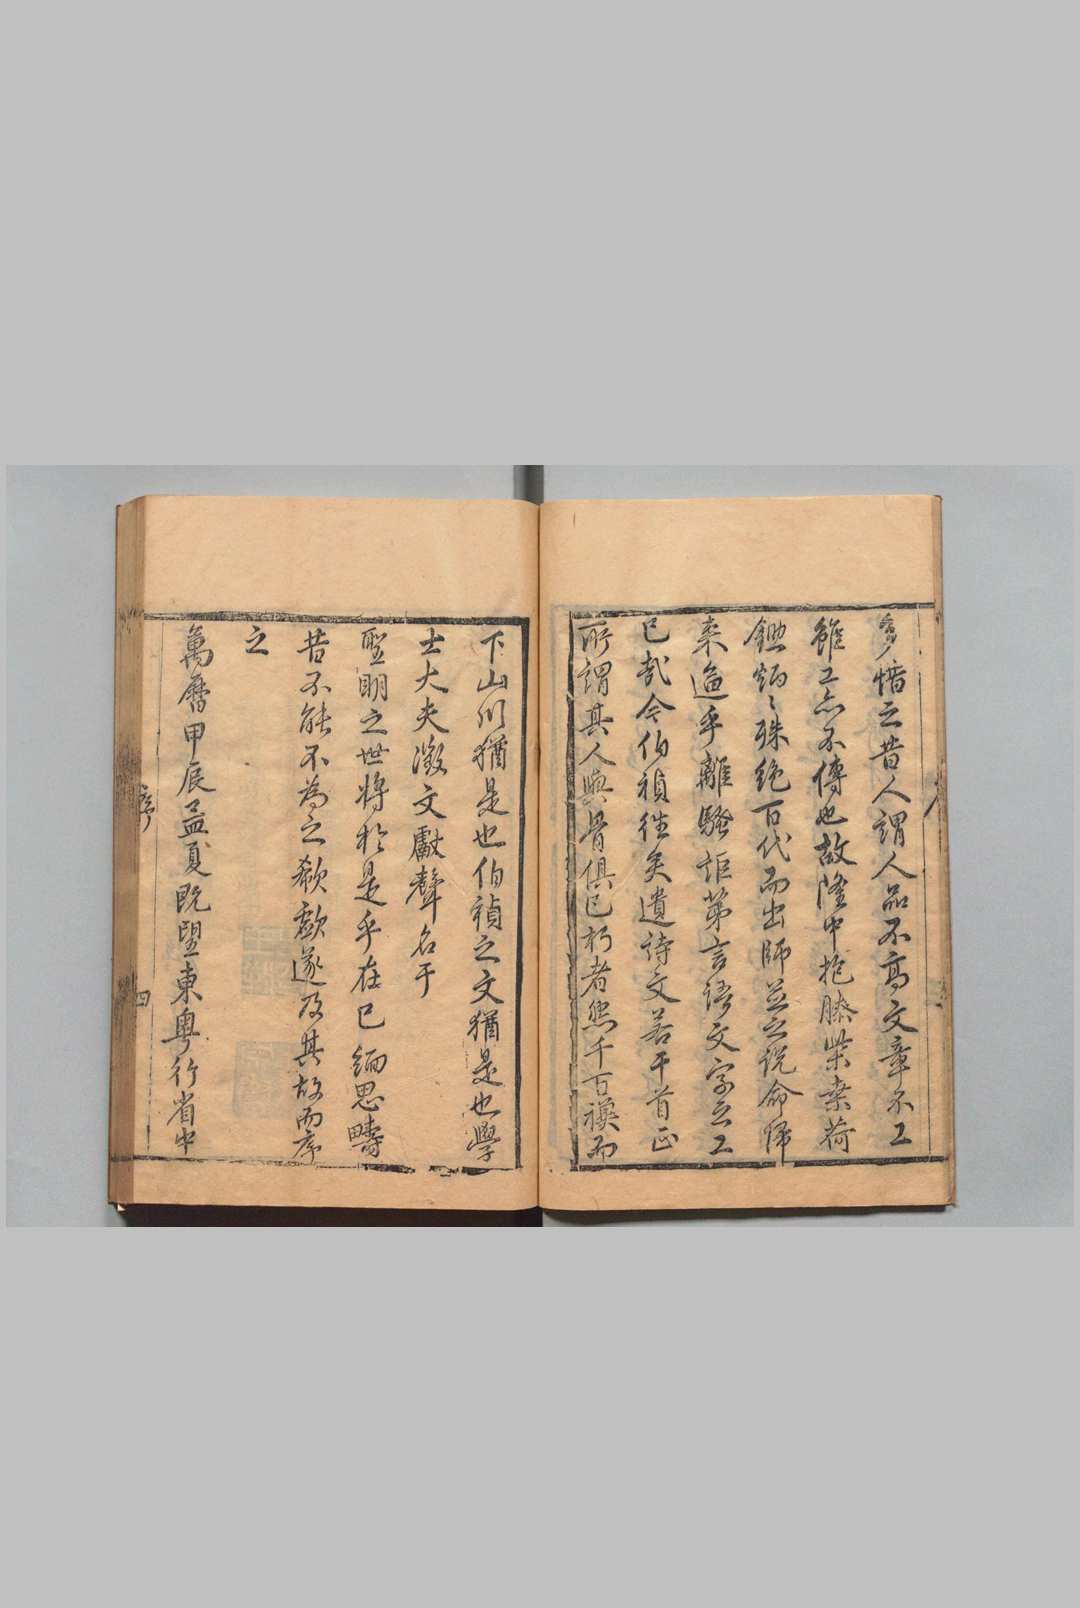 多惜之昔人謂人品不高文章不工
雖工亦不傳也故隆中抱膝柴桑荷
鋤炳〻殊絶百代而出師並之說命歸
来逌乎離騷詎第言語文字之工
已哉今伯禎徃矣遺詩文若干首正
所謂其人與骨俱已朽者然千百禩而
下山川猶是也伯禎之文猶是也學
士大夫徵文獻聲名于
聖明之世將於是乎在已緬思疇
昔不能不為之欷歔遂及其故而序
之
萬曆甲辰孟夏既望東粵行省中
序
四